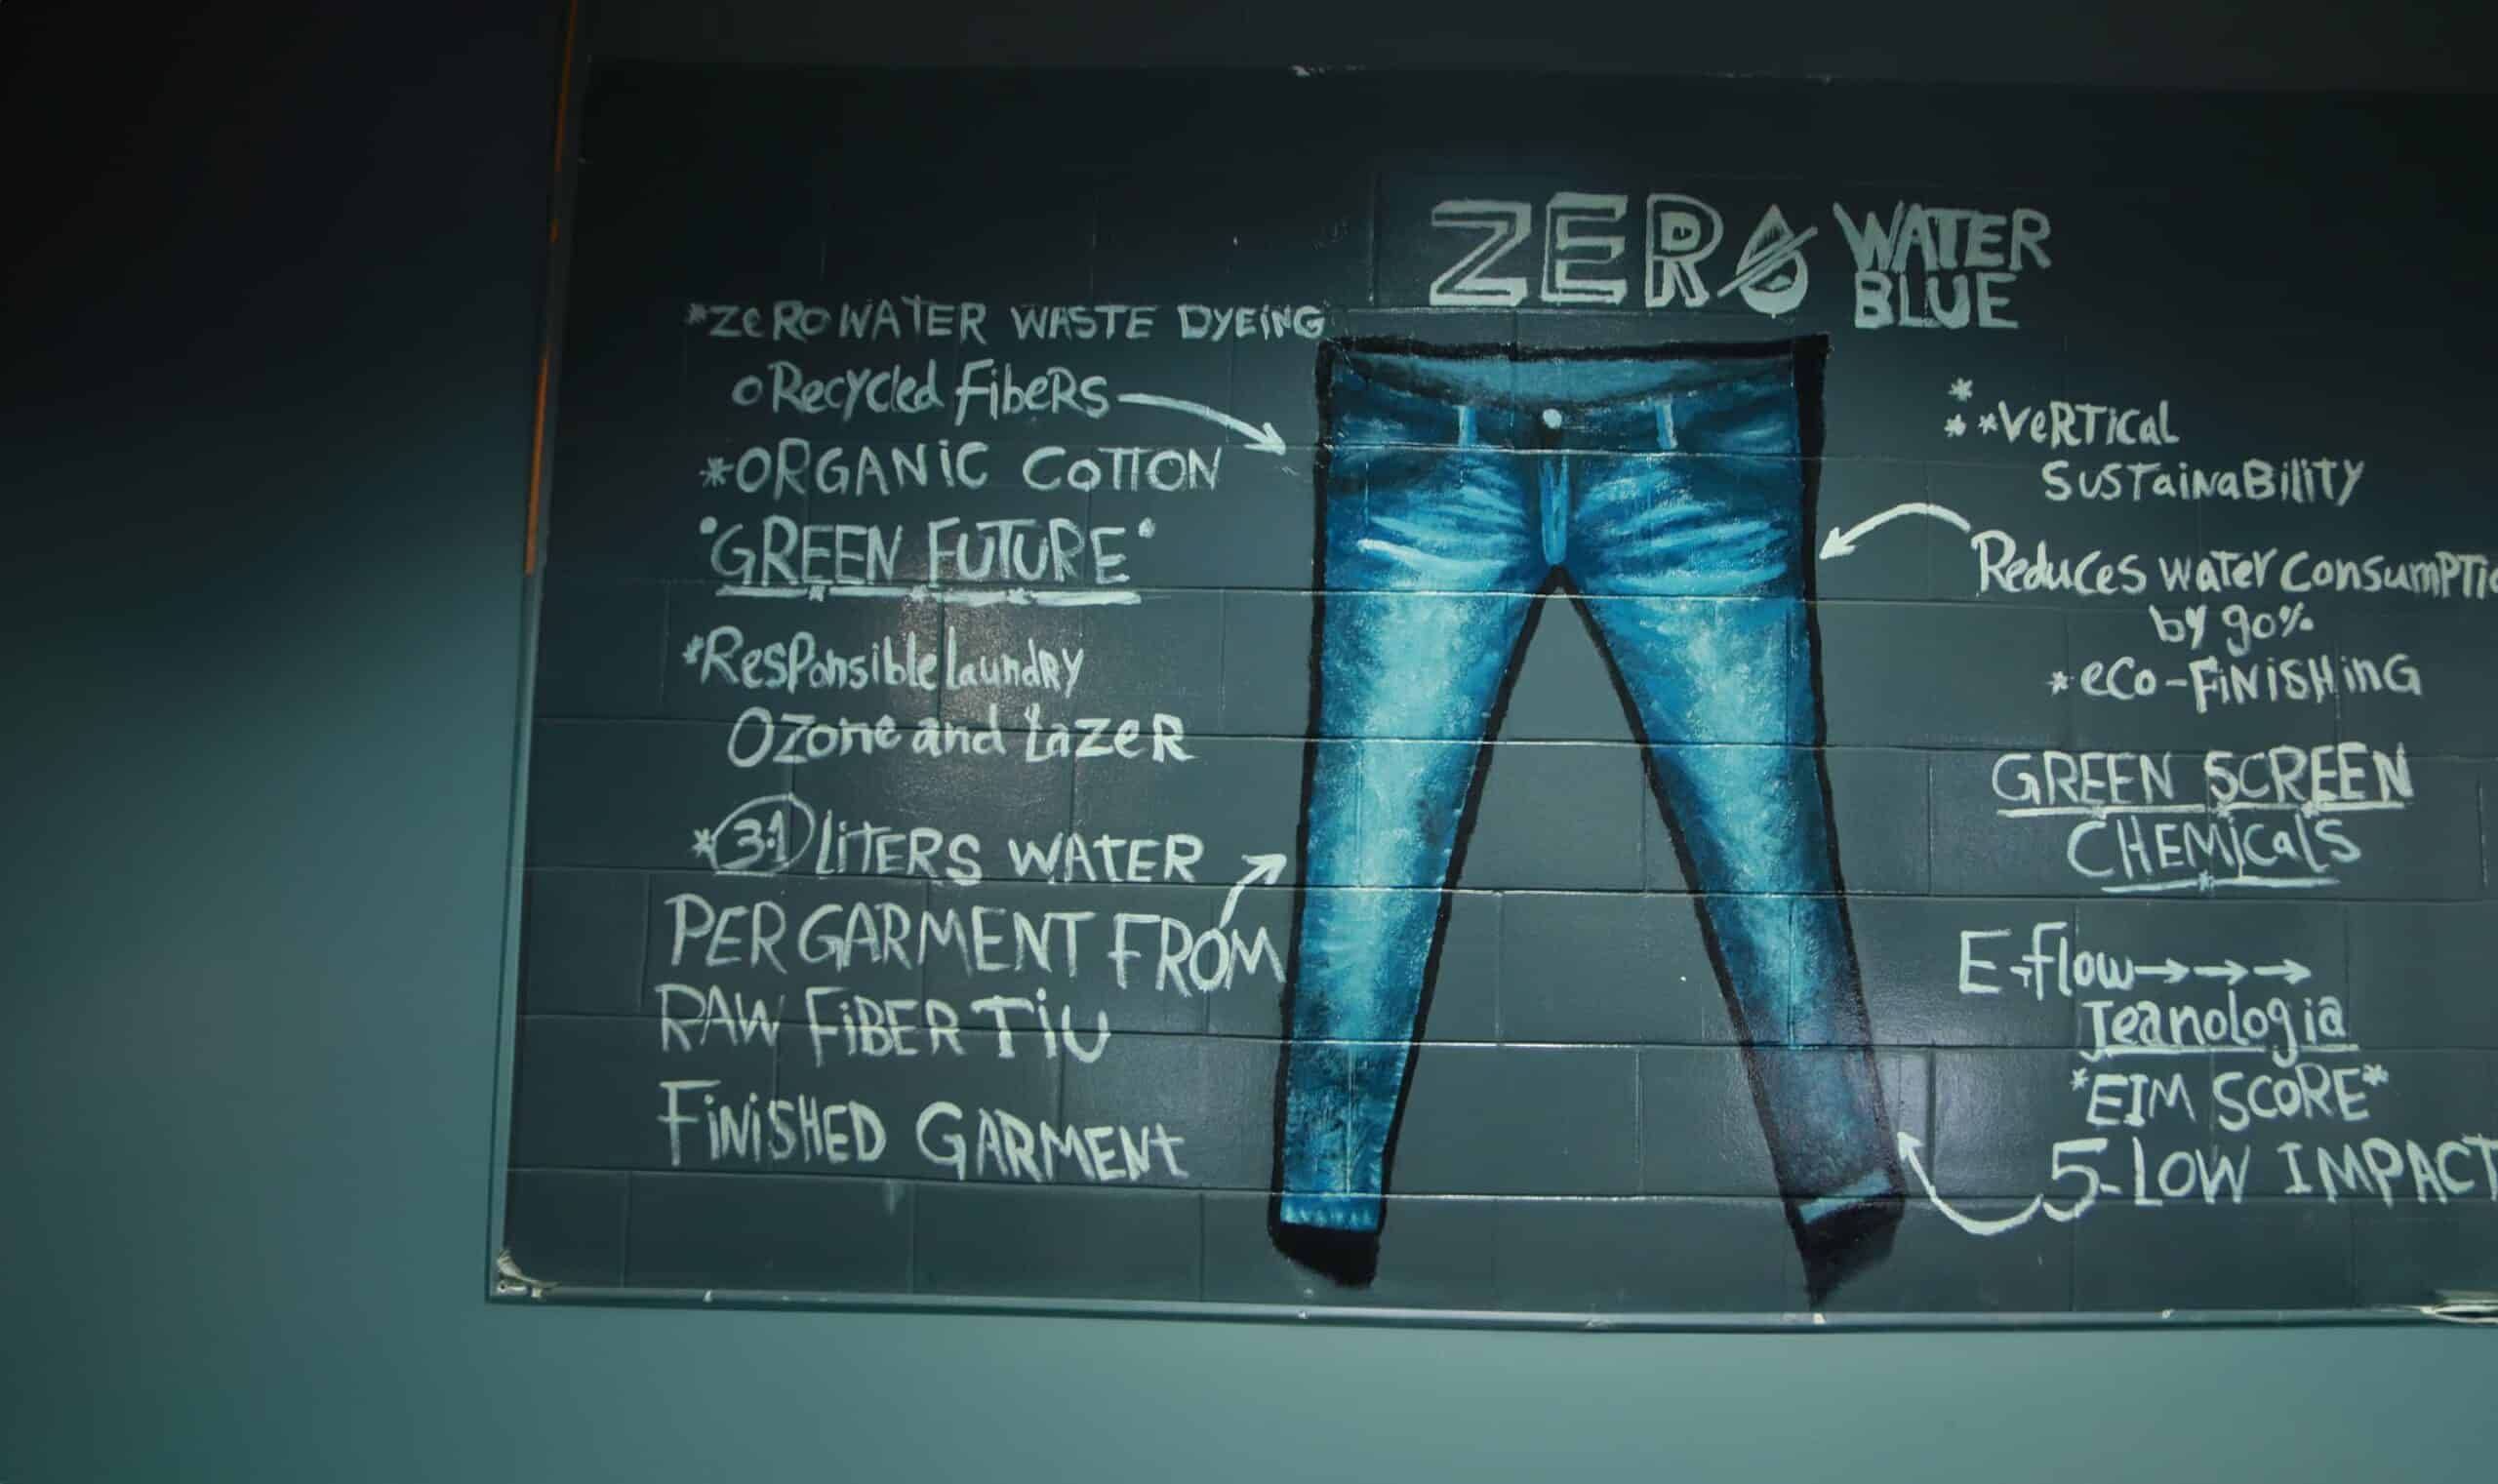 ZERO WATER
BLUE
*ZeRO WATER WASTE DYEiNG
o Recycled Fibers
*ORGANiC COTTON
"GREEN FUTURE"
*Responsible laundry
Ozone and LazeR
*3.1 LiTERS WATER
PER GARMENT FROM
RAW FiBER TiU
FiNiSHED GARMENt
**VeRTical
SUSTaiNaBiliTY
Reduces water consumptio
by 90%
*eco-FiNiSHinG
GREEN SCREEN
CHEMicalS
E-flow→→→
Jeanologia
*EIM SCORE*
5-LOW IMPACT